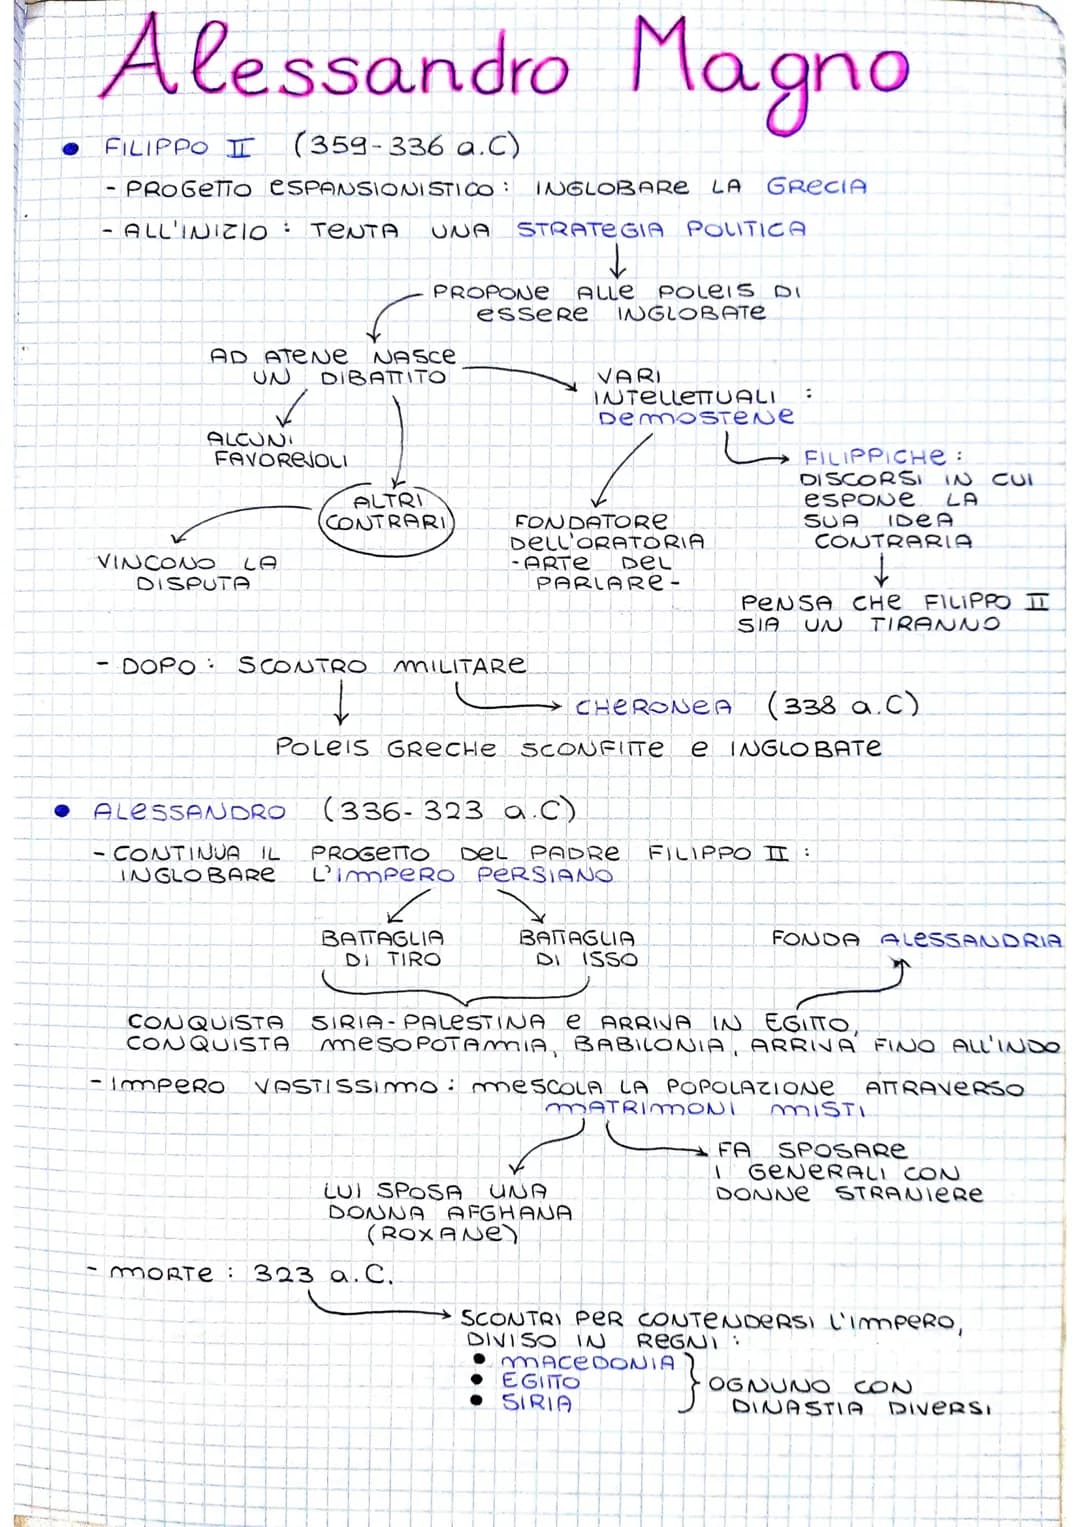 Alessandro Magno
• FILIPPO II (359-336 a.C)
- PROGETTO ESPANSIONISTICO: INGLOBARE LA GRECIA
- ALL'INIZIO: TENTA UNA STRATEGIA POLITICA
PROPONE ALLE POLEIS DI
ESSERE INGLOBATE
AD ATENE NASCE
UN DIBATTITO
VARI
INTELLETTUALI:
DEMOSTENE
ALCUNI
FAVOREVOLI
FILIPPICHE:
DISCORSI IN CUI
ESPONE LA
SUA IDEA
CONTRARIA
ALTRI
CONTRARI
FONDATORE
DELL'ORATORIA
-ARTE DEL
PARLARE-
VINCONO LA
DISPUTA
PENSA CHE FILIPPO II
SIA UN TIRANNO
- DOPO: SCONTRO MILITARE
CHERONEA (338 a.C)
POLEIS GRECHE SCONFITTE E INGLOBATE
• ALESSANDRO (336-323 a.C)
- CONTINUA IL PROGETTO DEL PADRE FILIPPO II:
INGLOBARE L'IMPERO PERSIANO
BATTAGLIA
DI TIRO
BATTAGLIA
DI ISSO
FONDA ALESSANDRIA
CONQUISTA SIRIA-PALESTINA E ARRIVA IN EGITTO,
CONQUISTA MESOPOTAMIA, BABILONIA, ARRIVA FINO ALL'INDO
- IMPERO VASTISSIMO: MESCOLA LA POPOLAZIONE ATTRAVERSO
MATRIMONI MISTI
FA SPOSARE
I GENERALI CON
DONNE STRANIERE
LUI SPOSA UNA
DONNA AFGHANA
(ROXANE)
- MORTE: 323 a.C.
SCONTRI PER CONTENDERSI L'IMPERO,
DIVISO IN REGNI:
• MACEDONIA
• EGITTO
• SIRIA
OGNUNO CON
DINASTIA DIVERSI